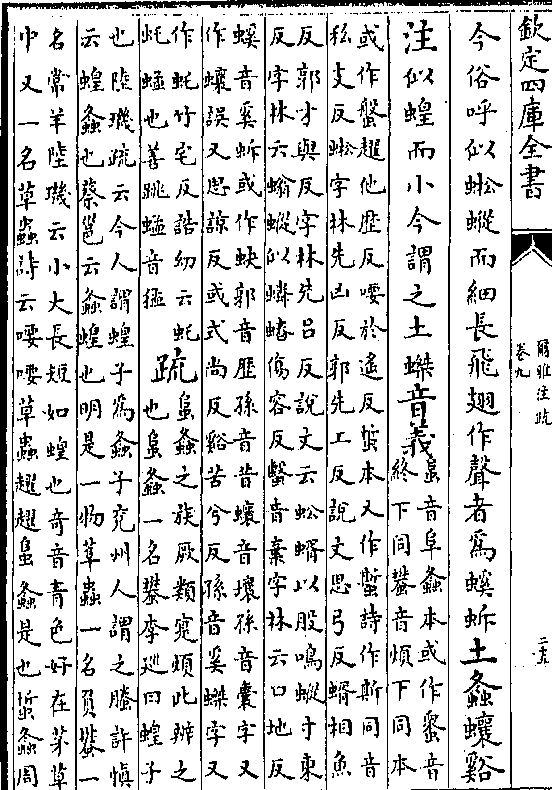 欽定四庫全書
爾雅注疏
卷九
二五
今俗呼似蜙䗥而細長飛翅作聲者為螇蚸土螽蠰谿
注似蝗而小今謂之土蟅音義
𧒂音阜螽本或作蟲音
終下同蠜音煩下同本
或作螌趯他歷反喓於遙反蜤本又作蜇詩作斯同音
私支反蜙字林先凶反郭先工反說文思弓反蝑相魚
反郭才與反字林先呂反說文云蚣蝑以股鳴䗥寸東
反字林云螉䗥似蟒蝽傷容反蟿音棄字林云口地反
螇音奚蚸或作蚗郭音歷孫音昔蠰音壤孫音囊字又
作蠰誤又思諒反或式尚反谿苦兮反孫音奚蟅字又
作虴竹宅反詁幼云虴
虴蜢也善跳蜢音猛
疏
𧒂螽之族厥類寔煩此辨之
也𧒂螽一名蠜李巡曰蝗子
也陸璣疏云今人謂蝗子為螽子兖州人謂之螣許慎
云蝗螽也蔡邕云螽蝗也明是一物草蟲一名負蠜一
名常羊陸璣云小大長短如蝗也奇音青色好在茅草
中又一名草蟲詩云喓喓草蟲趯趯𧒂螽是也蜤螽周